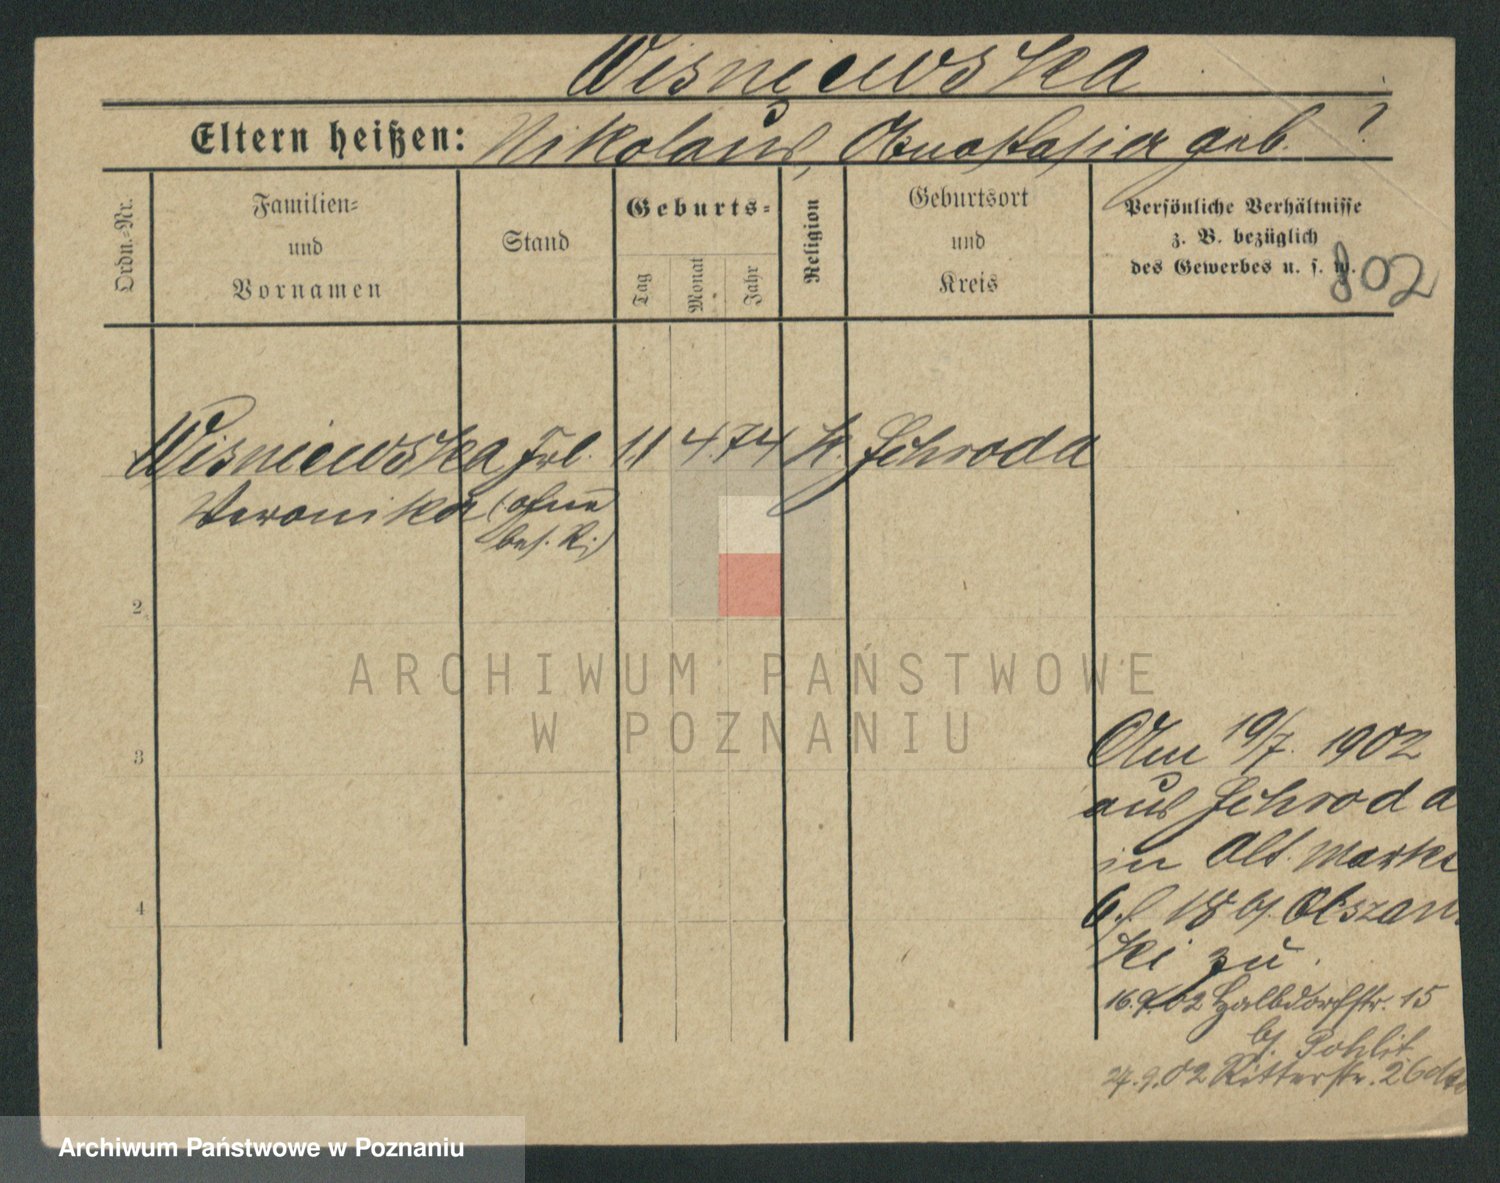 Wisniewska
Eltern heißen: Nikolaus, Anastasia geb. ?
Ordn.-Nr.
Familien-
und
Vornamen
Stand
Geburts-
Tag
Monat
Jahr
Religion
Geburtsort
und
Kreis
Persönliche Verhältnisse
z. B. bezüglich
des Gewerbes u. s. w.
802
Wisniewska Frl. 11 4. 74 k. Schroda
Veronika (ohne
bes. )
2
3
4
Am 19/7. 1902
aus Schroda
in Alt. Markt
6. 18 bj. Olszaw
ski zu.
16.9.02 Halbdorfstr. 15
bj. Pohlit.
24.9.02 Ritterstr. 26
ARCHIWUM PAŃSTWOWE
W POZNANIU
Archiwum Państwowe w Poznaniu